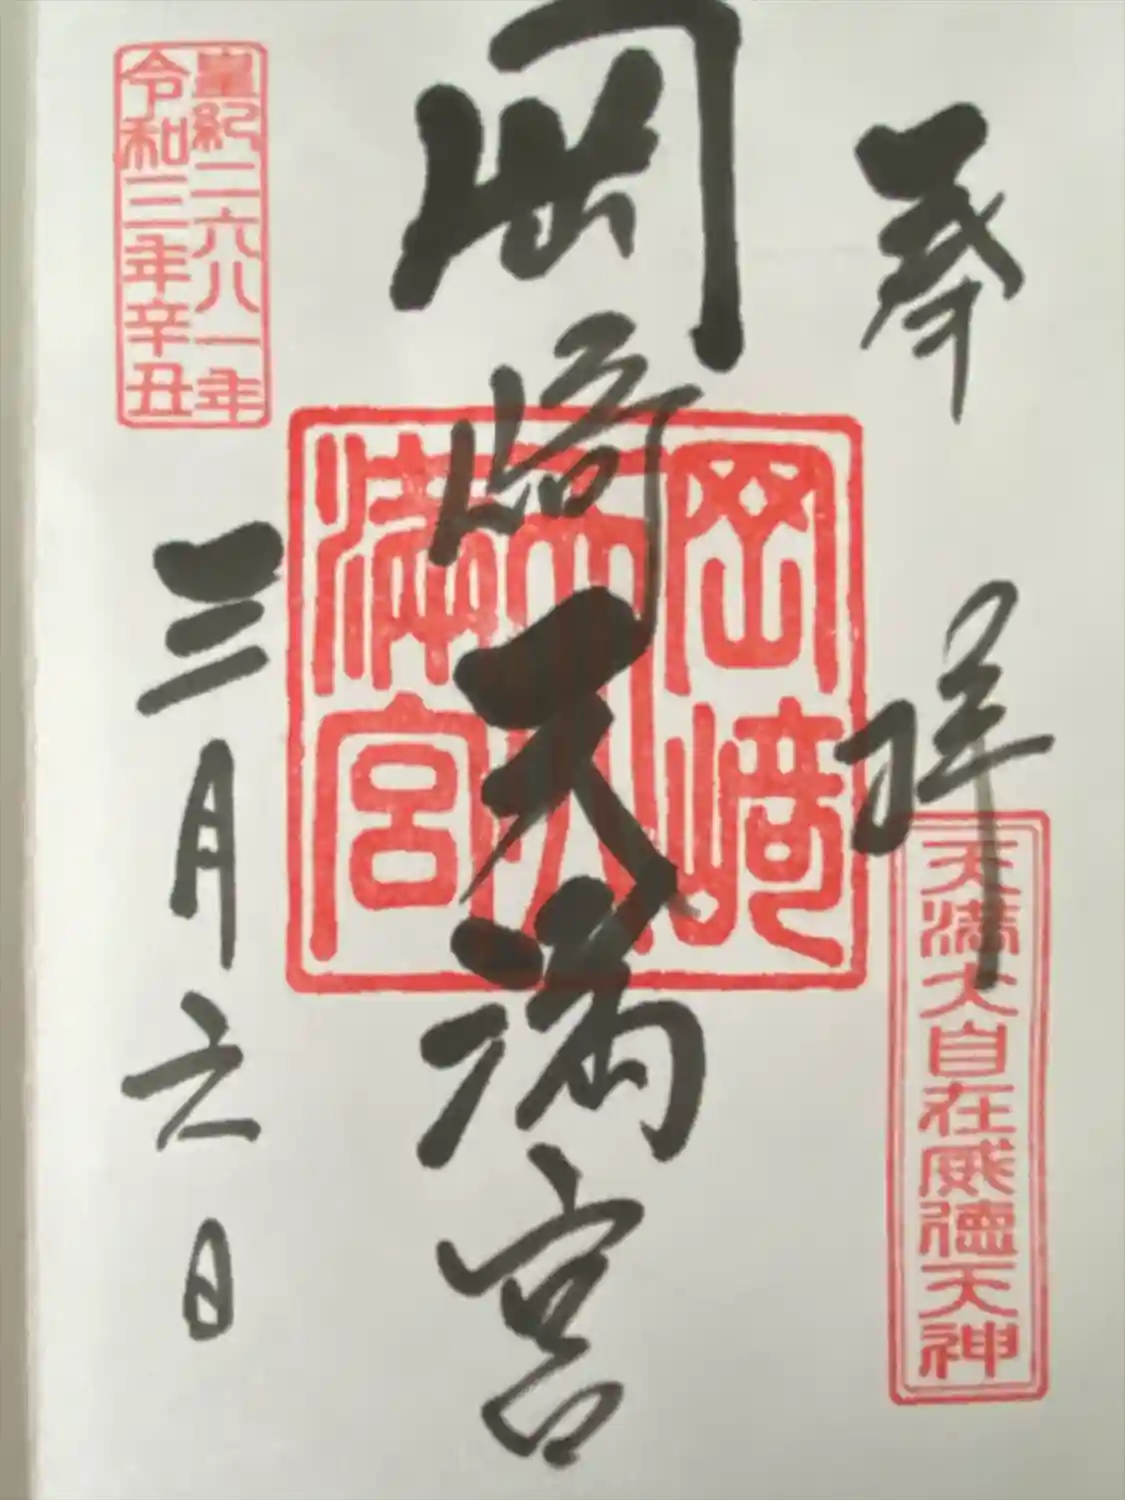 奉拝
天満大自在威徳天神
岡崎天満宮
岡崎
天
満宮
皇紀二六八一年
令和三年辛丑
三月六日